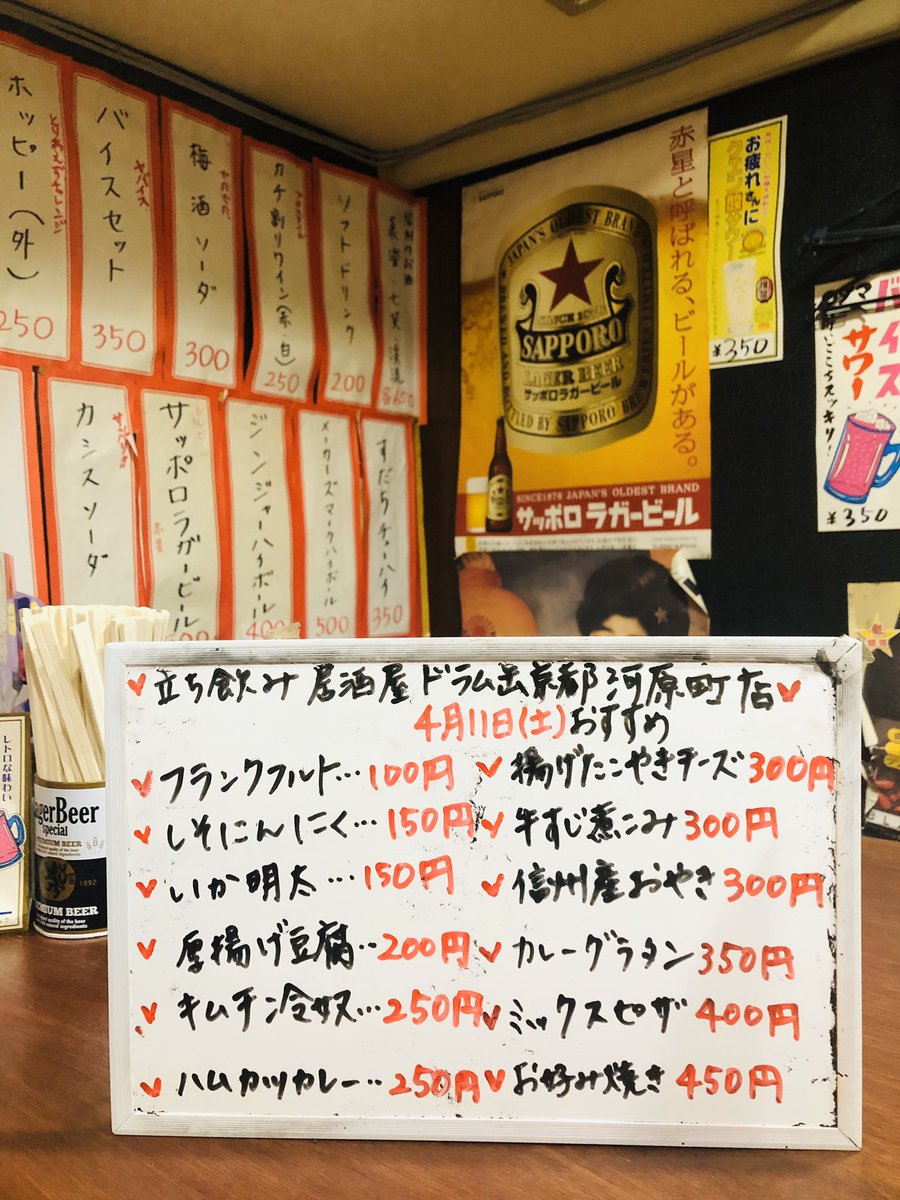 ホッピー(外)
250
バイスセット
ヤバイス
350
梅酒ソーダ
300
カチ割りワイン(赤・白)
250
ソフトドリンク
200
七笑
各650
カシスソーダ
サッポロラガービール
赤星
ジンジャーハイボール
400
メーカーズマークハイボール
500
すだちチューハイ
350
赤星と呼ばれる、ビールがある。
JAPAN'S OLDEST BRAND
SINCE 1876
SAPPORO
LAGER BEER
サッポロラガービール
SINCE1876 JAPAN'S OLDEST BRAND
サッポロ ラガービール
お疲れさんに
¥350
バイス
サワー
スッキリ!
¥350
レトロな味わい
LagerBeer
Special
PREMIUM BEER
1892
PREMIUM BEER
♥立ち飲み居酒屋ドラム缶京都河原町店♥
4月11日(土)おすすめ
♥フランクフルト…100円
♥しそにんにく…150円
♥いか明太…150円
♥厚揚げ豆腐‥200円
♥キムチ冷奴…250円
♥ハムカツカレー‥250円
♥揚げたこやきチーズ300円
♥牛すじ煮こみ300円
♥信州産おやき300円
♥カレーグラタン350円
♥ミックスピザ400円
♥お好み焼き450円